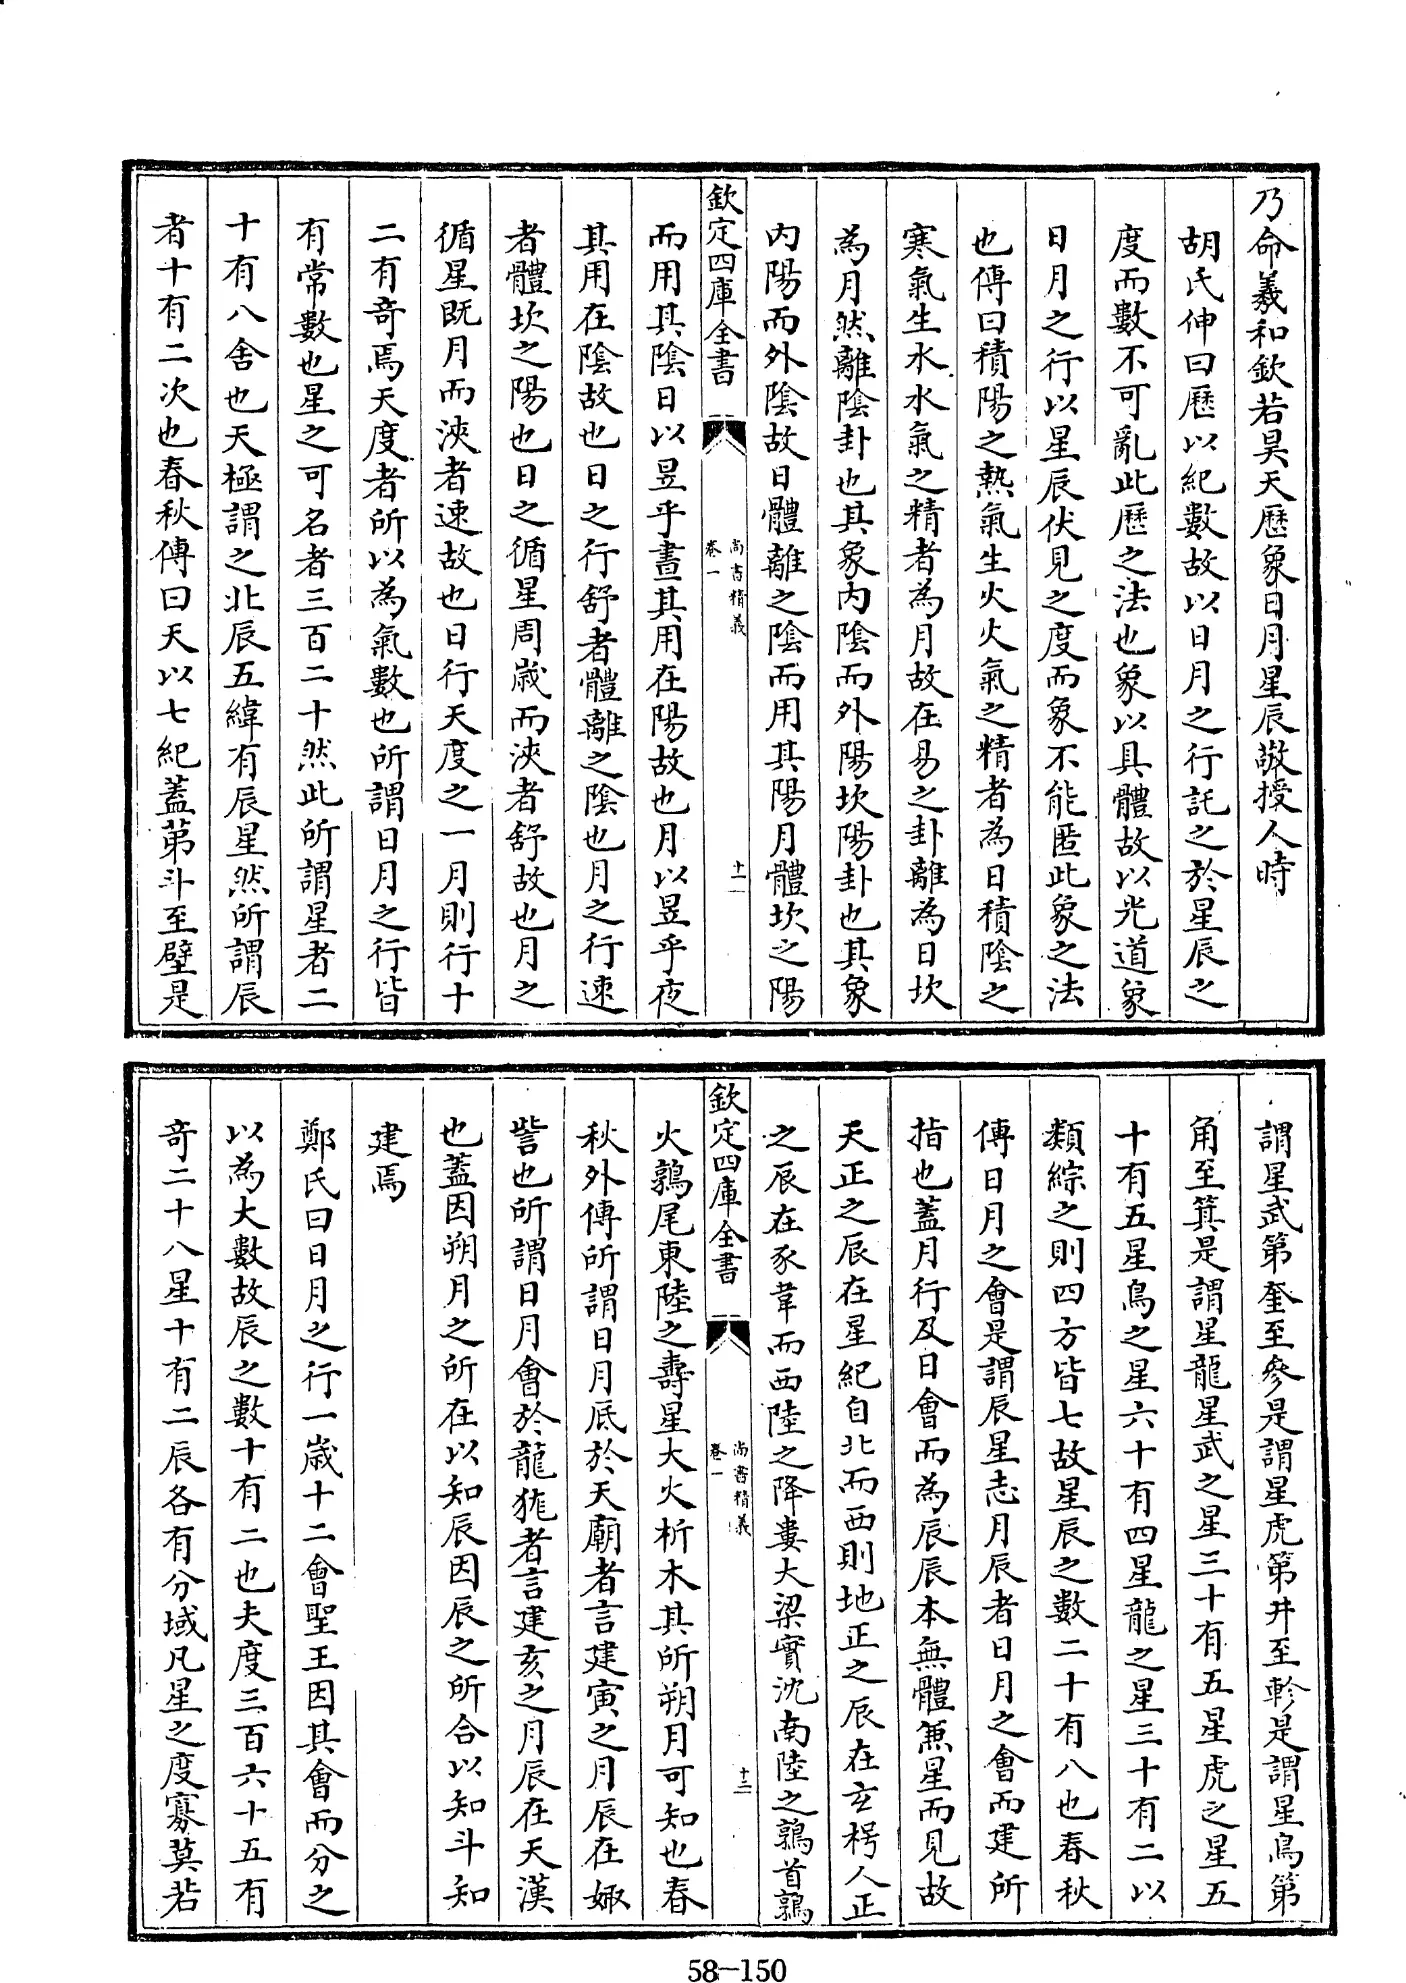 乃命羲和欽若昊天歷象日月星辰敬授人時
胡氏伸曰歷以紀數故以日月之行託之於星辰之
度而數不可亂此歷之法也象以具體故以光道象
日月之行以星辰伏見之度而象不能匿此象之法
也傳曰積陽之熱氣生火火氣之精者為日積陰之
寒氣生水水氣之精者為月故在易之卦離為日坎
為月然離陰卦也其象內陰而外陽坎陽卦也其象
內陽而外陰故日體離之陰而用其陽月體坎之陽
欽定四庫全書
尚書精義
卷一
十一
而用其陰日以昱乎晝其用在陽故也月以昱乎夜
其用在陰故也日之行舒者體離之陰也月之行速
者體坎之陽也日之循星周嵗而浹者舒故也月之
循星既月而浹者速故也日行天度之一月則行十
二有奇焉天度者所以為氣數也所謂日月之行皆
有常數也星之可名者三百二十然此所謂星者二
十有八舍也天極謂之北辰五緯有辰星然所謂辰
者十有二次也春秋傳曰天以七紀蓋第斗至壁是
謂星武第奎至參是謂星虎第井至軫是謂星鳥第
角至箕是謂星龍星武之星三十有五星虎之星五
十有五星鳥之星六十有四星龍之星三十有二以
類綜之則四方皆七故星辰之數二十有八也春秋
傳日月之會是謂辰星志月辰者日月之會而建所
指也蓋月行及日會而為辰辰本無體兼星而見故
天正之辰在星紀自北而西則地正之辰在玄枵人正
之辰在豕韋而西陸之降婁大梁實沈南陸之鶉首鶉
欽定四庫全書
尚書精義
卷一
十二
火鶉尾東陸之壽星大火析木其所朔月可知也春
秋外傳所謂日月底於天廟者言建寅之月辰在娵
訾也所謂日月會於龍㹠者言建亥之月辰在天漢
也蓋因朔月之所在以知辰因辰之所合以知斗知
建焉
鄭氏曰日月之行一嵗十二會聖王因其會而分之
以為大數故辰之數十有二也夫度三百六十五有
奇二十八星十有二辰各有分域凡星之度寡莫若
58-150